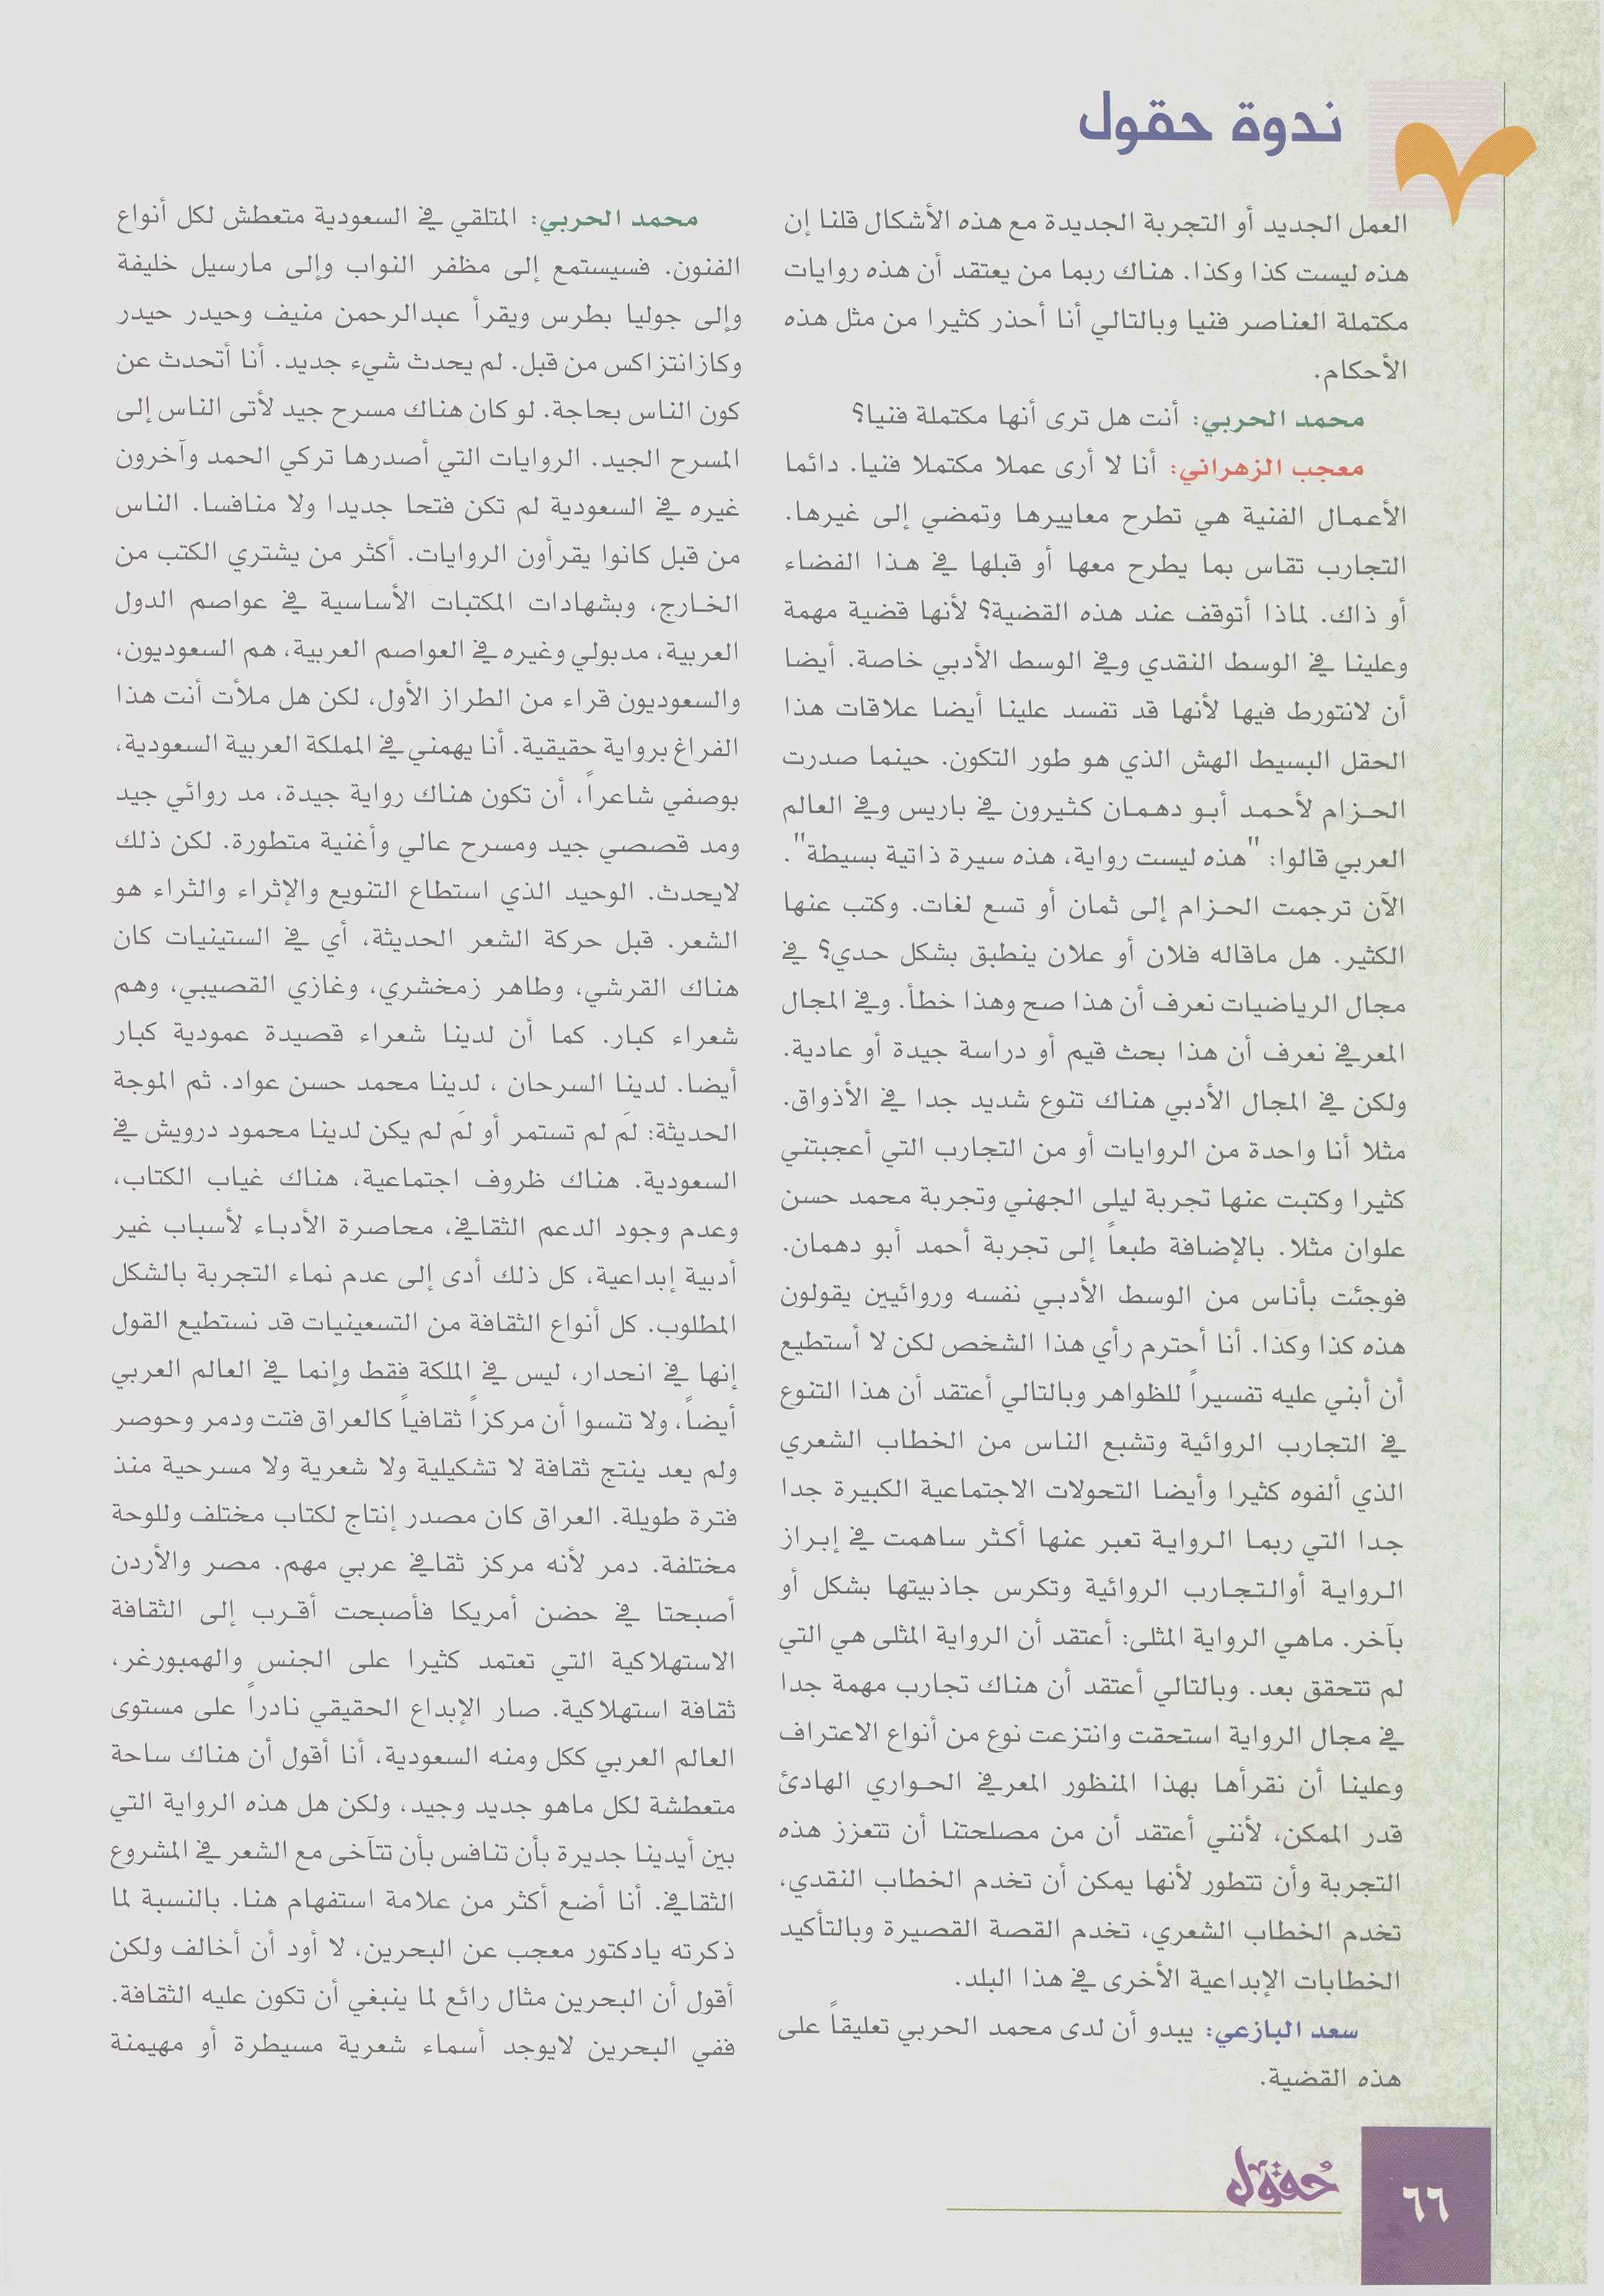 ندوة حقول
العمل الجديد أو التجربة الجديدة مع هذه الأشكال قلنا إن
هذه ليست كذا وكذا. هناك ربما من يعتقد أن هذه روايات
مكتملة العناصر فنيا وبالتالي أنا أحذر كثيرا من مثل هذه
الأحكام.
محمد الحربي: أنت هل ترى أنها مكتملة فنيا؟
معجب الزهراني: أنا لا أرى عملا مكتملا فنيا. دائما
الأعمال الفنية هي تطرح معاييرها وتمضي إلى غيرها.
التجارب تقاس بما يطرح معها أو قبلها في هذا الفضاء
أو ذاك. لماذا أتوقف عند هذه القضية؟ لأنها قضية مهمة
وعلينا في الوسط النقدي وفي الوسط الأدبي خاصة. أيضا
أن لانتورط فيها لأنها قد تفسد علينا أيضا علاقات هذا
الحقل البسيط الهش الذي هو طور التكون. حينما صدرت
الحزام لأحمد أبو دهمان كثيرون في باريس وفي العالم
العربي قالوا: "هذه ليست رواية، هذه سيرة ذاتية بسيطة".
الآن ترجمت الحزام إلى ثمان أو تسع لغات. وكتب عنها
الكثير. هل ماقاله فلان أو علان ينطبق بشكل حدي؟ في
مجال الرياضيات نعرف أن هذا صح وهذا خطأ. وفي المجال
المعرفي نعرف أن هذا بحث قيم أو دراسة جيدة أو عادية.
ولكن في المجال الأدبي هناك تنوع شديد جدا في الأذواق.
مثلا أنا واحدة من الروايات أو من التجارب التي أعجبتني
كثيرا وكتبت عنها تجربة ليلى الجهني وتجربة محمد حسن
علوان مثلا. بالإضافة طبعاً إلى تجربة أحمد أبو دهمان.
فوجئت بأناس من الوسط الأدبي نفسه وروائيين يقولون
هذه كذا وكذا. أنا أحترم رأي هذا الشخص لكن لا أستطيع
أن أبني عليه تفسيراً للظواهر وبالتالي أعتقد أن هذا التنوع
في التجارب الروائية وتشبع الناس من الخطاب الشعري
الذي ألفوه كثيرا وأيضا التحولات الاجتماعية الكبيرة جدا
جدا التي ربما الرواية تعبر عنها أكثر ساهمت في إبراز
الرواية أوالتجارب الروائية وتكرس جاذبيتها بشكل أو
بآخر. ماهي الرواية المثلى: أعتقد أن الرواية المثلى هي التي
لم تتحقق بعد. وبالتالي أعتقد أن هناك تجارب مهمة جدا
في مجال الرواية استحقت وانتزعت نوع من أنواع الاعتراف
وعلينا أن نقرأها بهذا المنظور المعرفي الحواري الهادئ
قدر الممكن، لأنني أعتقد أن من مصلحتنا أن تتعزز هذه
التجربة وأن تتطور لأنها يمكن أن تخدم الخطاب النقدي،
تخدم الخطاب الشعري، تخدم القصة القصيرة وبالتأكيد
الخطابات الإبداعية الأخرى في هذا البلد.
سعد البازعي: يبدو أن لدى محمد الحربي تعليقاً على
هذه القضية.
محمد الحربي: المتلقي في السعودية متعطش لكل أنواع
الفنون. فسيستمع إلى مظفر النواب وإلى مارسيل خليفة
وإلى جوليا بطرس ويقرأ عبدالرحمن منيف وحيدر حيدر
وكازانتزاكس من قبل. لم يحدث شيء جديد. أنا أتحدث عن
كون الناس بحاجة. لو كان هناك مسرح جيد لأتى الناس إلى
المسرح الجيد. الروايات التي أصدرها تركي الحمد وآخرون
غيره في السعودية لم تكن فتحا جديدا ولا منافسا. الناس
من قبل كانوا يقرأون الروايات. أكثر من يشتري الكتب من
الخارج، وبشهادات المكتبات الأساسية في عواصم الدول
العربية، مدبولي وغيره في العواصم العربية، هم السعوديون،
والسعوديون قراء من الطراز الأول، لكن هل ملأت أنت هذا
الفراغ برواية حقيقية. أنا يهمني في المملكة العربية السعودية،
بوصفي شاعراً، أن تكون هناك رواية جيدة، مد روائي جيد
ومد قصصي جيد ومسرح عالي وأغنية متطورة. لكن ذلك
لايحدث. الوحيد الذي استطاع التنويع والإثراء والثراء هو
الشعر. قبل حركة الشعر الحديثة، أي في الستينيات كان
هناك القرشي، وطاهر زمخشري، وغازي القصيبي، وهم
شعراء كبار. كما أن لدينا شعراء قصيدة عمودية كبار
أيضا. لدينا السرحان ، لدينا محمد حسن عواد. ثم الموجة
الحديثة: لمَ لم تستمر أو لمَ لم يكن لدينا محمود درويش في
السعودية. هناك ظروف اجتماعية، هناك غياب الكتاب،
وعدم وجود الدعم الثقافي، محاصرة الأدباء لأسباب غير
أدبية إبداعية، كل ذلك أدى إلى عدم نماء التجربة بالشكل
المطلوب. كل أنواع الثقافة من التسعينيات قد نستطيع القول
إنها في انحدار، ليس في الملكة فقط وإنما في العالم العربي
أيضاً، ولا تنسوا أن مركزاً ثقافياً كالعراق فتت ودمر وحوصر
ولم يعد ينتج ثقافة لا تشكيلية ولا شعرية ولا مسرحية منذ
فترة طويلة. العراق كان مصدر إنتاج لكتاب مختلف وللوحة
مختلفة. دمر لأنه مركز ثقافي عربي مهم. مصر والأردن
أصبحتا في حضن أمريكا فأصبحت أقرب إلى الثقافة
الاستهلاكية التي تعتمد كثيرا على الجنس والهمبورغر،
ثقافة استهلاكية. صار الإبداع الحقيقي نادراً على مستوى
العالم العربي ككل ومنه السعودية، أنا أقول أن هناك ساحة
متعطشة لكل ماهو جديد وجيد، ولكن هل هذه الرواية التي
بين أيدينا جديرة بأن تنافس بأن تتآخى مع الشعر في المشروع
الثقافي. أنا أضع أكثر من علامة استفهام هنا. بالنسبة لما
ذكرته يادكتور معجب عن البحرين، لا أود أن أخالف ولكن
أقول أن البحرين مثال رائع لما ينبغي أن تكون عليه الثقافة.
ففي البحرين لايوجد أسماء شعرية مسيطرة أو مهيمنة
حقول
٦٦